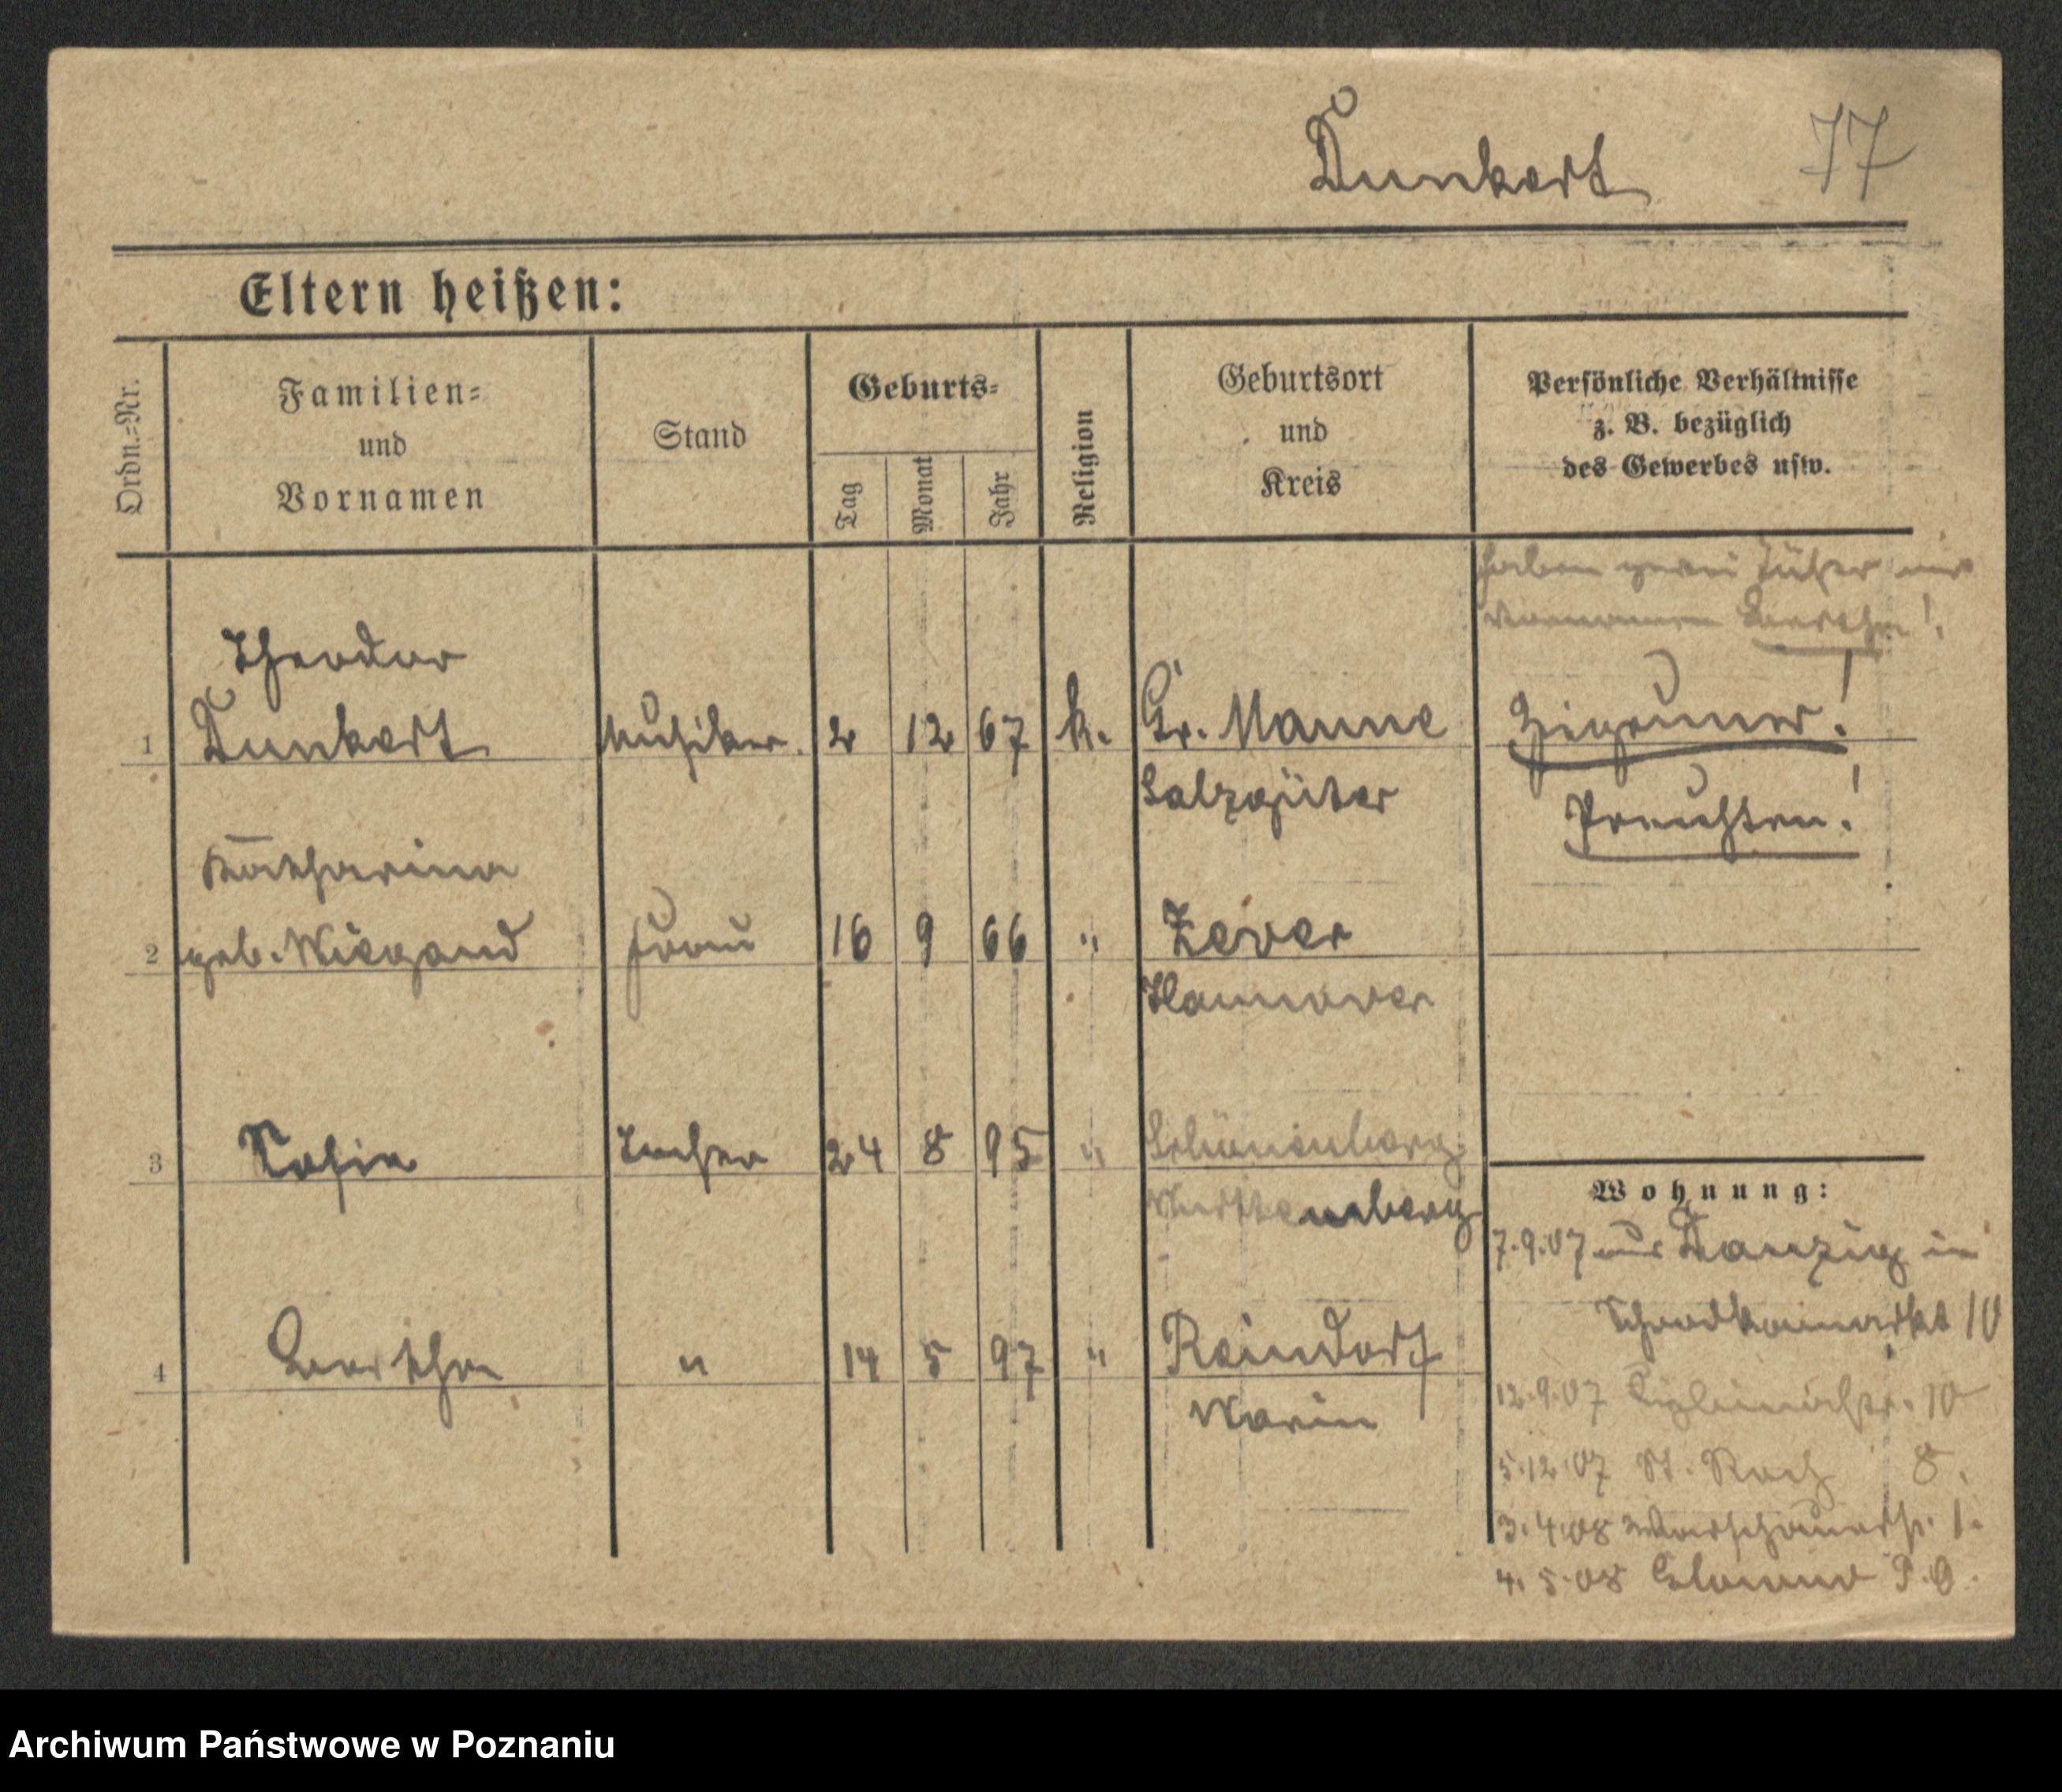 Dunkert 77
Eltern heißen:
Ordn.=Nr.
Familien=
und
Vornamen
Stand
Geburts=
Tag
Monat
Jahr
Religion
Geburtsort
und
Kreis
Persönliche Verhältnisse
z. B. bezüglich
des Gewerbes usw.
haben zwei
Vornamen
Theodor
1 Dunkert Musiker. 2 12 67 k. Gr. Zigeuner!
Salzgitter
Preußen!
Katharina
2 geb. Wiegand Frau 16 9 66 " Zever
Hannover
3 Sofia Tochter 24 8 95 "
Wohnung:
7.9.07 aus Danzig in
10
4 " 14 5 97 " Reindorf
12.9.07 10
5.12.07 St. Roch 8.
3.4.08 Warschauerstr. 1.
4.5.08 Glowno P. O.
Archiwum Państwowe w Poznaniu